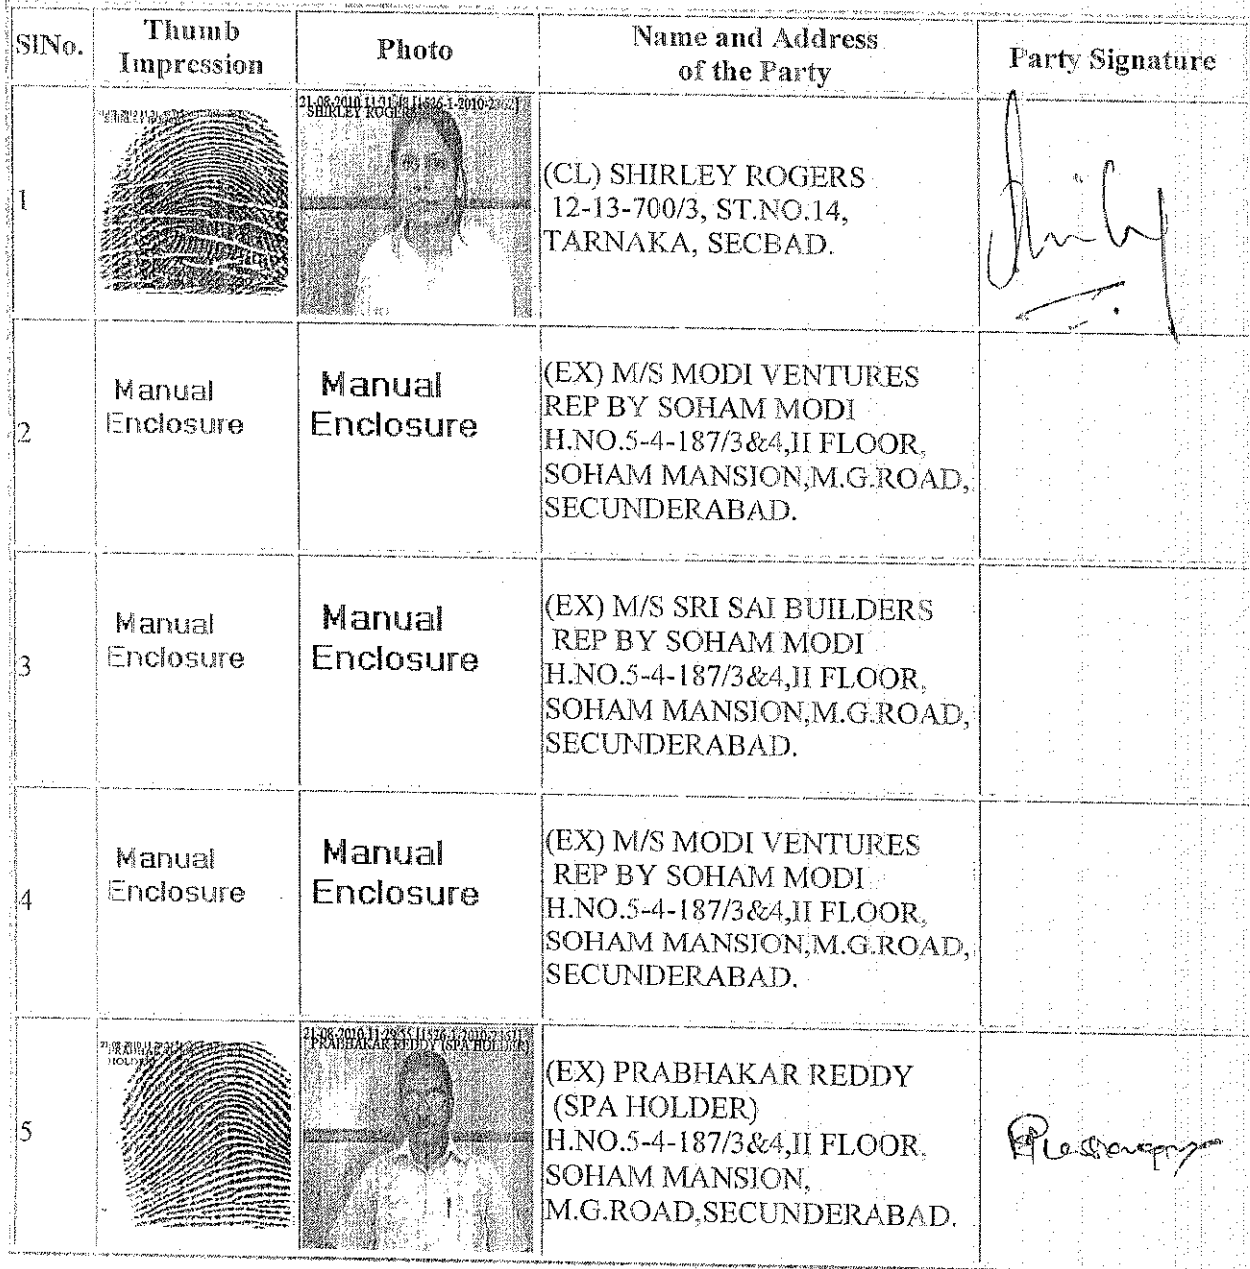 SlNo.
Thumb
Impression
Photo
Name and Address
of the Party
Party Signature
1
21-08-2010 11:31:48 [1526-1-2010-2362]
SHIRLEY ROGERS
(CL) SHIRLEY ROGERS
12-13-700/3, ST.NO.14,
TARNAKA, SECBAD.
2
Manual
Enclosure
Manual
Enclosure
(EX) M/S MODI VENTURES
REP BY SOHAM MODI
H.NO.5-4-187/3&4,II FLOOR,
SOHAM MANSION,M.G.ROAD,
SECUNDERABAD.
3
Manual
Enclosure
Manual
Enclosure
(EX) M/S SRI SAI BUILDERS
REP BY SOHAM MODI
H.NO.5-4-187/3&4,II FLOOR,
SOHAM MANSION,M.G.ROAD,
SECUNDERABAD.
4
Manual
Enclosure
Manual
Enclosure
(EX) M/S MODI VENTURES
REP BY SOHAM MODI
H.NO.5-4-187/3&4,II FLOOR,
SOHAM MANSION,M.G.ROAD,
SECUNDERABAD.
5
PRABHAKAR REDDY (SPA HOLDER)
(EX) PRABHAKAR REDDY
(SPA HOLDER)
H.NO.5-4-187/3&4,II FLOOR,
SOHAM MANSION,
M.G.ROAD,SECUNDERABAD.